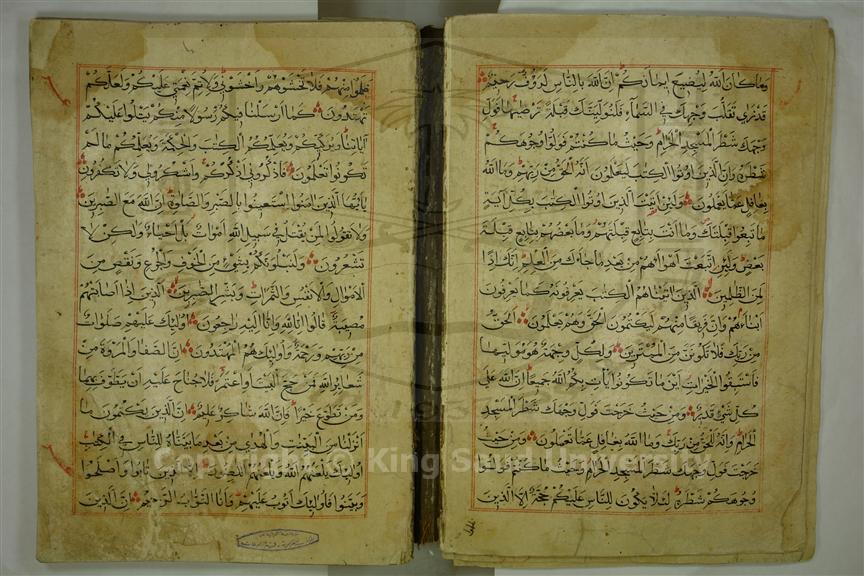 وماكان الله ليضيع ايمانكم ان الله بالناس لرءوف رحيم
قد نرى تقلب وجهك في السماء فلنولينك قبلة ترضيها فول
وجهك شطر المسجد الحرام وحيث ما كنتم فولوا وجوهكم
شطره وان الذين اوتوا الكتب ليعلمون انه الحق من ربهم وما الله
بغافل عما يعملون ولئن اتيت الذين اوتوا الكتب بكل اية
ما تبعوا قبلتك وما انت بتابع قبلتهم وما بعضهم بتابع قبلة
بعض ولئن اتبعت اهواءهم من بعد ما جاءك من العلم انك اذا
لمن الظلمين الذين اتيناهم الكتب يعرفونه كما يعرفون
ابناءهم وان فريقا منهم ليكتمون الحق وهم يعلمون الحق
من ربك فلا تكونن من الممترين ولكل وجهة هو موليها
فاستبقوا الخيرات اين ما تكونوا يأت بكم الله جميعا ان الله على
كل شيء قدير ومن حيث خرجت فول وجهك شطر المسجد
الحرام وانه للحق من ربك وما الله بغافل عما تعملون ومن حيث
خرجت فول وجهك شطر المسجد الحرام وحيث ما كنتم فولوا
وجوهكم شطره لئلا يكون للناس عليكم حجة الا الذين
ظلموا منهم فلا تخشوهم واخشوني ولاتم نعمتي عليكم ولعلكم
تهتدون كما ارسلنا فيكم رسولا منكم يتلوا عليكم
اياتنا ويزكيكم ويعلمكم الكتاب والحكمة ويعلمكم ما لم
تكونوا تعلمون فاذكروني اذكركم واشكروا لي ولا تكفرون
يايها الذين امنوا استعينوا بالصبر والصلوة ان الله مع الصبرين
ولا تقولوا لمن يقتل في سبيل الله اموات بل احياء ولكن لا
تشعرون ولنبلونكم بشيء من الخوف والجوع ونقص من
الاموال والانفس والثمرات وبشر الصبرين الذين اذا اصابتهم
مصيبة قالوا انا لله وانا اليه راجعون اولئك عليهم صلوات
من ربهم ورحمة واولئك هم المهتدون ان الصفا والمروة من
شعاير الله فمن حج البيت او اعتمر فلا جناح عليه ان يطوف بهما
ومن تطوع خيرا فان الله شاكر عليم ان الذين يكتمون ما
انزلنا من البينت والهدى من بعد ما بيناه للناس في الكتب
اولئك يلعنهم الله ويلعنهم اللعنون الا الذين تابوا واصلحوا
وبينوا فاولئك اتوب عليهم وانا التواب الرحيم ان الذين
Copyright © King Saud University